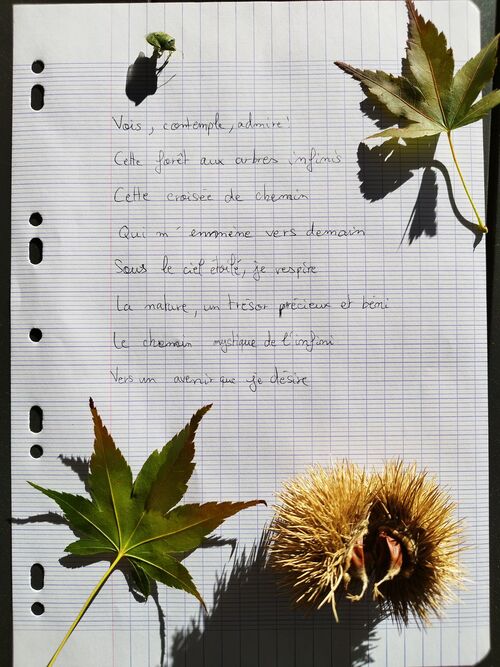 Vois, contemple, admire!
Cette forêt aux arbres infinis
Cette croisée de chemin
Qui m'emmène vers demain
Sous le ciel étoilé, je respire
La nature, un trésor précieux et béni
Le chemin mystique de l'infini
Vers un avenir que je désire